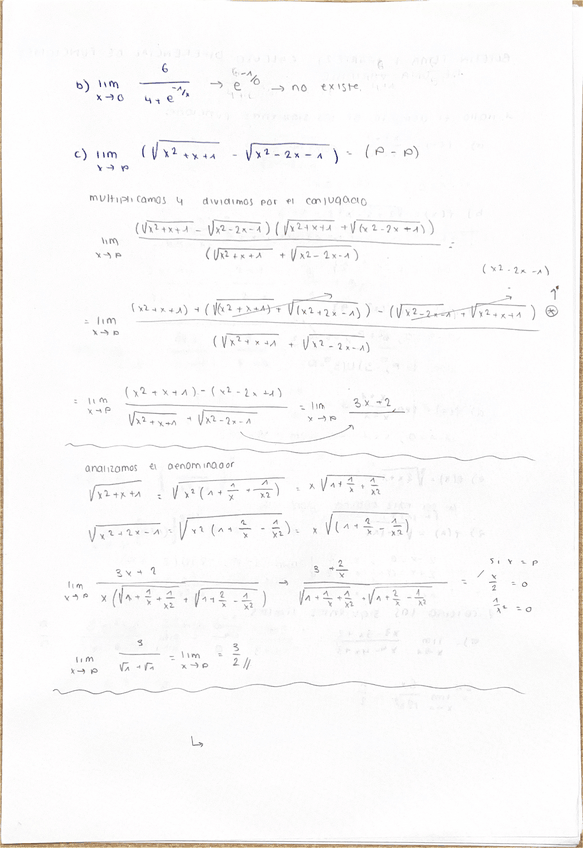 b) lim x→0 6 / (4 + e^(-1/x)) → e^(6-1/0) → no existe.
c) lim x→∞ (√(x² + x + 1) - √(x² - 2x - 1)) = (∞ - ∞)
multiplicamos y dividimos por el conjugado
lim x→∞ (√(x²+x+1) - √(x²-2x-1)) (√(x²+x+1) + √(x²-2x+1)) / (√(x²+x+1) + √(x²-2x-1)) =
(x²-2x-1)
= lim x→∞ (x²+x+1) + (√(x²+x+1) + √(x²+2x-1)) - (√(x²-2x-1) + √(x²+x+1)) ⊛ / (√(x²+x+1) + √(x²-2x-1))
= lim x→∞ (x²+x+1) - (x²-2x+1) / √(x²+x+1) + √(x²-2x-1) = lim x→∞ 3x+2
analizamos el denominador
√(x²+x+1) = √(x²(1+1/x+1/x²)) = x√(1+1/x+1/x²)
√(x²+2x-1) = √(x²(1+2/x-1/x²)) = x√(1+2/x-1/x²)
lim x→∞ 3x+2 / x(√(1+1/x+1/x²) + √(1+2/x-1/x²)) → 3+2/x / √(1+1/x+1/x²) + √(1+2/x-1/x²) =
si x = ∞
x/2 = 0
1/x² = 0
lim x→∞ 3 / √1+√1 = lim x→∞ = 3/2 //
↳